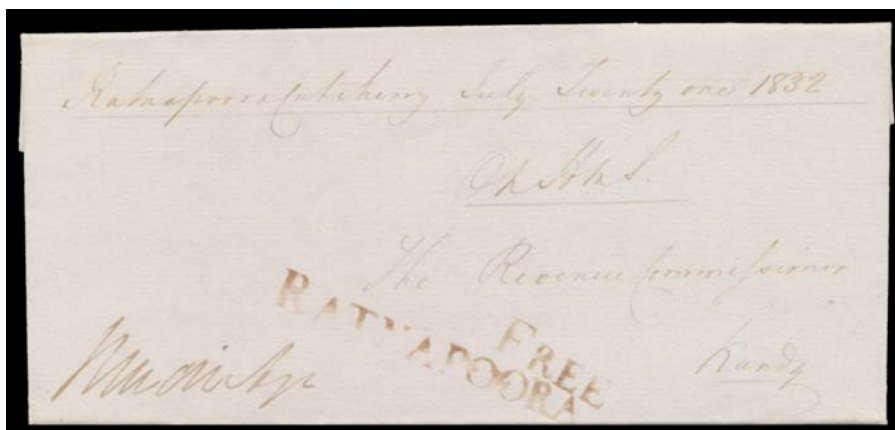 Ratnapoora Cutcherry July Twenty one 1832
On H M S.
The Revenue Commissioner
Kandy
FREE
RATNAPOORA